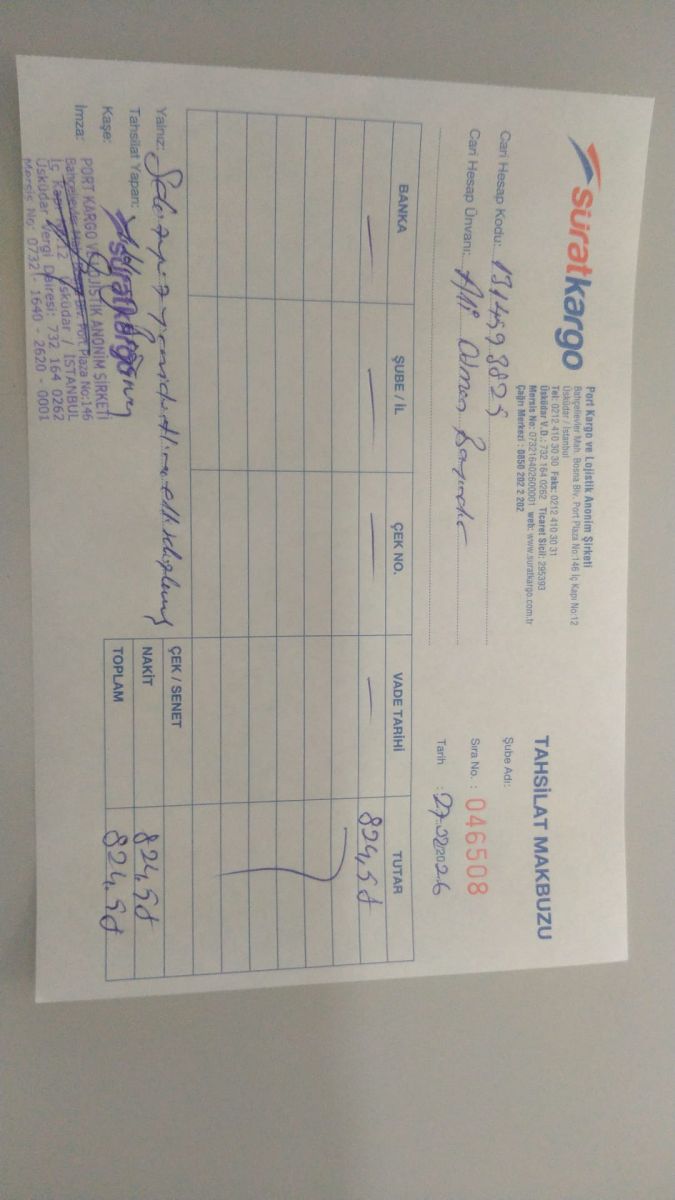 süratkargo
Port Kargo ve Lojistik Anonim Şirketi
Bahçelievler Mah. Bosna Blv. Port Plaza No:146 İç Kapı No:12
Üsküdar / İstanbul
Tel: 0212 410 30 30 Faks: 0212 410 30 31
Üsküdar V.D.: 732 164 0262 Ticaret Sicil: 295393
Mersis No: 0732164026200001 web: www.suratkargo.com.tr
Çağrı Merkezi : 0850 202 2 202
TAHSİLAT MAKBUZU
Şube Adı:
Cari Hesap Kodu: 1314593825
Sıra No. : 046508
Cari Hesap Ünvanı: Ali
Tarih : 27.02.2026
BANKA ŞUBE / İL ÇEK NO. VADE TARİHİ TUTAR
— — — — 824,58
ÇEK / SENET
Yalnız:
NAKİT 824,58
Tahsilat Yapan:
TOPLAM 824,58
Kaşe:
süratkargo
İmza:
PORT KARGO VE LOJİSTİK ANONİM ŞİRKETİ
Bahçelievler Mah. Bosna Blv. Port Plaza No:146
İç Kapı No:12 Üsküdar / İSTANBUL
Üsküdar Vergi Dairesi: 732 164 0262
Mersis No: 0732 - 1640 - 2620 - 0001